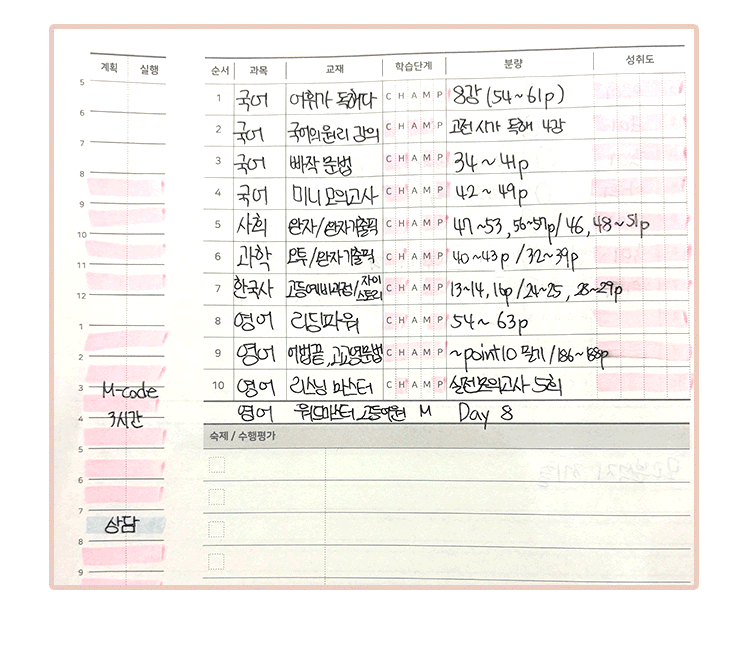 계획 실행
5
6
7
8
9
10
11
12
1
2
3 M-code
4 3시간
5
6
7
상담
8
9
순서 과목 교재 학습단계 분량 성취도
1 국어 어휘가 독해다 C H A M P 8강 (54~61p)
2 국어 국어의원리 강의 C H A M P 고전 시가 독해 4강
3 국어 빠작 문법 C H A M P 34~41p
4 국어 미니 모의고사 C H A M P 42~49p
5 사회 완자/완자기출픽 C H A M P 47~53, 56~57p/46, 48~51p
6 과학 오투/완자기출픽 C H A M P 40~43p /32~39p
7 한국사 고등예비과정/자이스토리 C H A M P 13~14, 16p/24~25, 28~29p
8 영어 리딩파워 C H A M P 54~63p
9 영어 어법끝, 고고영문법 C H A M P ~point10 암기/186~188p
10 영어 리스닝 마스터 C H A M P 실전모의고사 5회
영어 워드마스터 고등 M Day 8
숙제 / 수행평가